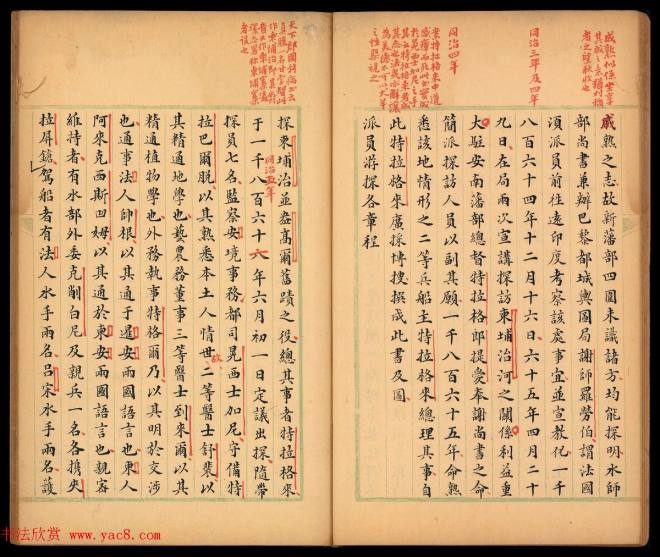 熟之志故新藩部四圍未識諸方均能探明水師
部尚書兼辦巴黎都城輿圖局謝師羅勞伯謂法國
項派員前往遠印度考察該處事宜並宣教化一千
同治三年及四年
八百六十四年十二月十六日六十五年四月二十
九日在局兩次宣講探訪東埔治河之關係利益重
大駐安南藩部總督特拉格郎提愛奉謝尚書之命
同治四年
簡派探訪人員以副其願一千八百六十五年命熟
悉該地情形之二等兵船主特拉格來總理其事自
此特拉格來廣採博搜撰成此書及圖
派員游探各章程
探東埔治並盎高爾舊蹟之役總其事者特拉格來
同治五年
于一千八百六十六年六月初一日定議出探隨帶
探員七名監察安境事務都司晃西士加尼守備特
拉巴爾脱以其熟悉本土人情世故二等醫士舒裴以
其精通地學也藝農務董事三等醫士到來爾以其
精通植物學也外務執事特格爾乃以其明於交涉
也通事法人師根以其通于暹安兩國語言也東人
阿來克西斯凹姆以其通於東安兩國語言也親審
維持者有水部外委克削白尼及親兵一名各攜夾
拉屏鎗駕船者有法人水手兩名呂宋水手兩名護
书法欣赏 www.yac8.com